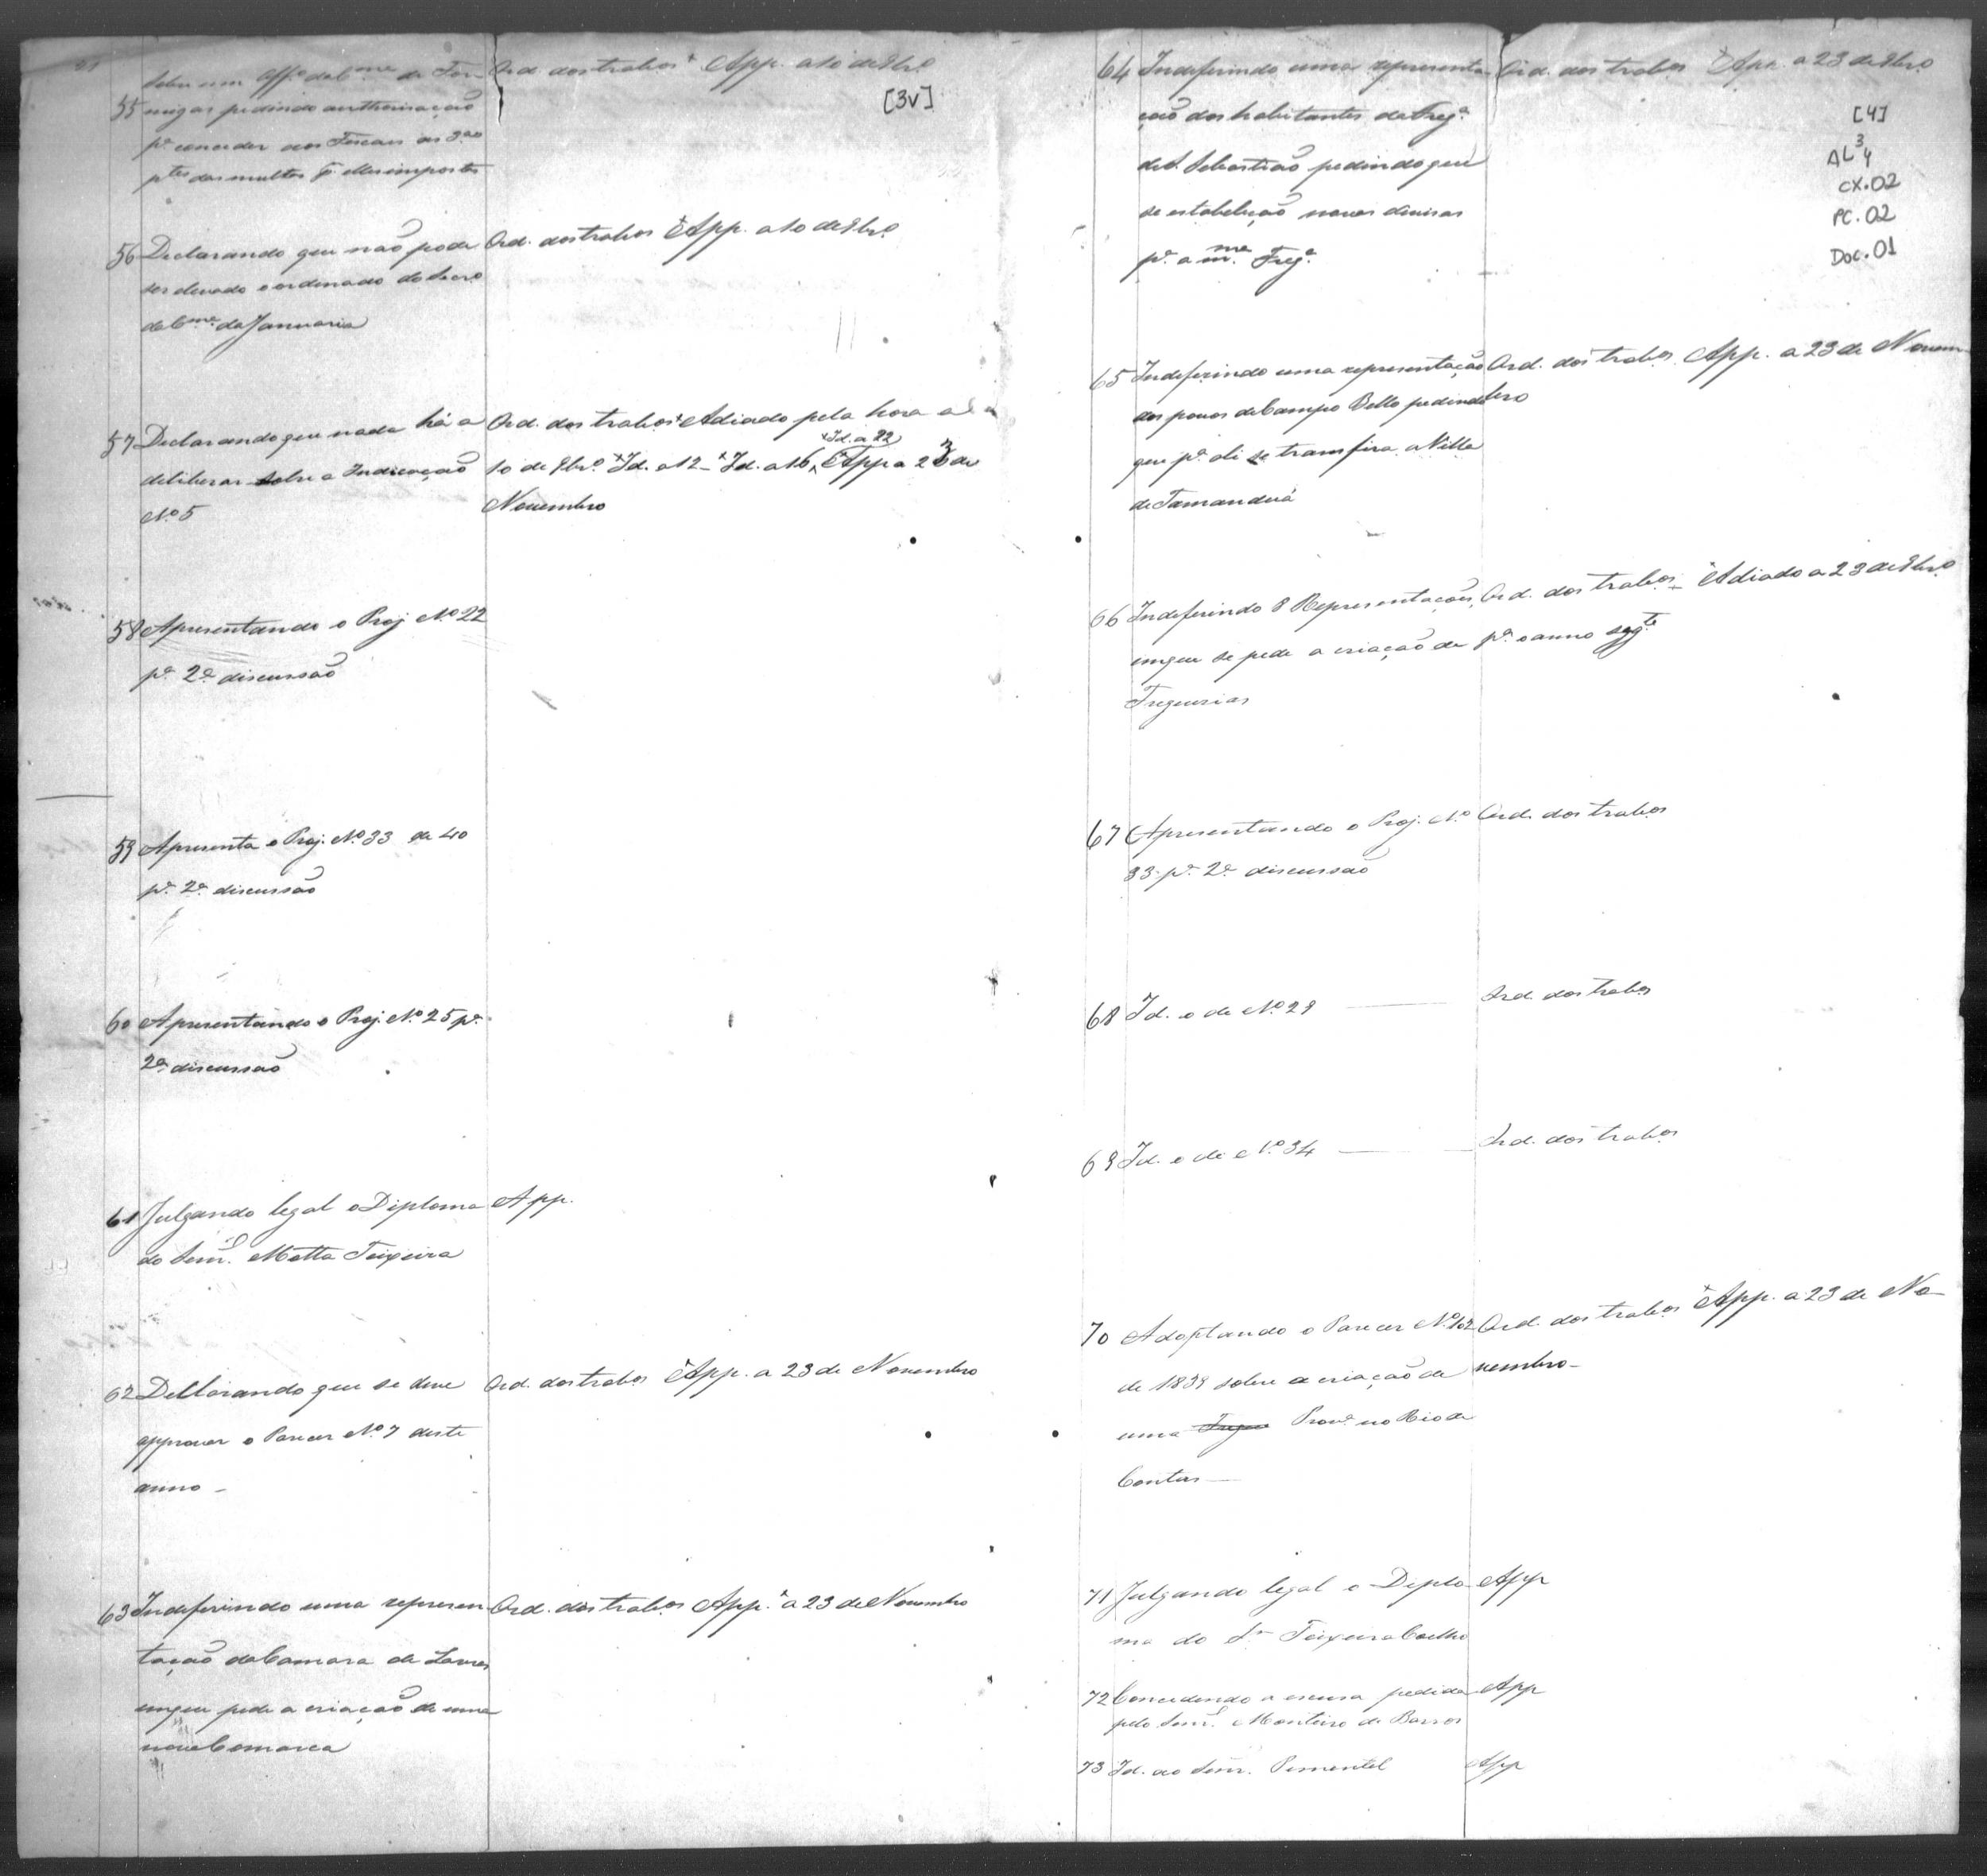 [3v]
Sobre um Off.º da Cmª de For- Ord. dos trabos App. a 10 de 9bro
55 migas pedindo authorisação
pª conceder aos Fiscaes as 3.as
ptes das multas pr elles impostas
56 Declarando que não pode Ord. dos trabos App. a 10 de 9bro
ser elevado o ordenado do Secro
da Cmª da Januaria
57 Declarando que nada há a Ord. dos trabos Adiado pela hora a
deliberar sobre a Indicação 10 de 9bro Id. a 12 - Id. a 16, Id. a 22 App a 23 de
Nº 5 Novembro
58 Apresentando o Proj Nº 22
pª 2ª discussão
59 Apresenta o Proj. Nº 33 de 40
pª 2ª discussão
60 Apresentando o Proj. Nº 25 pª
2ª discussão
61 Julgando legal o Diploma App.
do Senr. Motta Teixeira
62 Declarando que se deve Ord. dos trabos App. a 23 de Novembro
approvar o Parecer Nº 7 deste
anno -
63 Indeferindo uma represen- Ord. dos trabos App. a 23 de Novembro
tação da Camara de Lavras
em que pede a criação de uma
nova Comarca
64 Indeferindo uma representa- Ord. dos trabos App. a 23 de 9bro
[4]
ção dos habitantes da Fregª
AL 3 4
de S. Sebastião pedindo que
CX.02
se estabeleção novas divisas
PC.02
pª a mma Fregª
Doc.01
65 Indeferindo uma representação Ord. dos trabos App. a 23 de Novem-
dos povos de Campo Bello pedindo bro
que pª ali se transfira a Villa
de Tamanduá
66 Indeferindo 8 Representações, Ord. dos trabos - Adiado a 23 de 9bro
em que se pede a criação de pª o anno segte
Freguesias
67 Apresentando o Proj. Nº Ord. dos trabos
33 pª 2ª discussão
68 Id. o de Nº 29 — Ord. dos trabos
69 Id. o de Nº 34 — Ord. dos trabos
70 Adoptando o Parecer Nº 102 Ord. dos trabos App. a 23 de No-
de 1839 sobre a criação de vembro -
uma Fregue Provª no Rio de
Contas —
71 Julgando legal o Diplo- App
ma do Sr Teixeira Coelho
72 Concedendo a escusa pedida App
pelo Senr. Monteiro de Barros
73 Id. ao Senr. Pimentel App